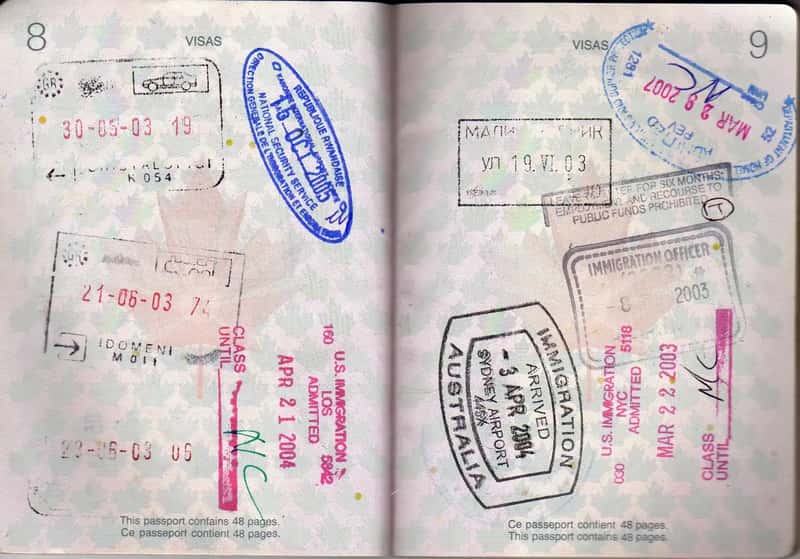 8
VISAS
GR
30-05-03 19
K 054
REPUBLIQUE RWANDAISE
NATIONAL SECURITY SERVICE
DIRECTION GENERALE DE L'IMMIGRATION ET
16 OCT 2005
GR
21-06-03
IDOMENI
M011
23-06-03 06
160 U.S. IMMIGRATION
LOS 5842
ADMITTED
APR 21 2004
CLASS
UNTIL
NC
This passport contains 48 pages.
Ce passeport contient 48 pages.
VISAS
9
1281
MAR 29 2007
NC
DEPARTMENT OF
УЛ 19.VI.03
FOR SIX MONTHS:
AND RECOURSE TO
PUBLIC FUNDS PROHIBITED
IMMIGRATION OFFICER
-8 2003
IMMIGRATION
ARRIVED
- 3 APR 2004
SYDNEY AIRPORT
AUSTRALIA
U.S. IMMIGRATION
030 NYC 5118
ADMITTED
MAR 22 2003
CLASS
UNTIL
NC
Ce passeport contient 48 pages.
This passport contains 48 pages.